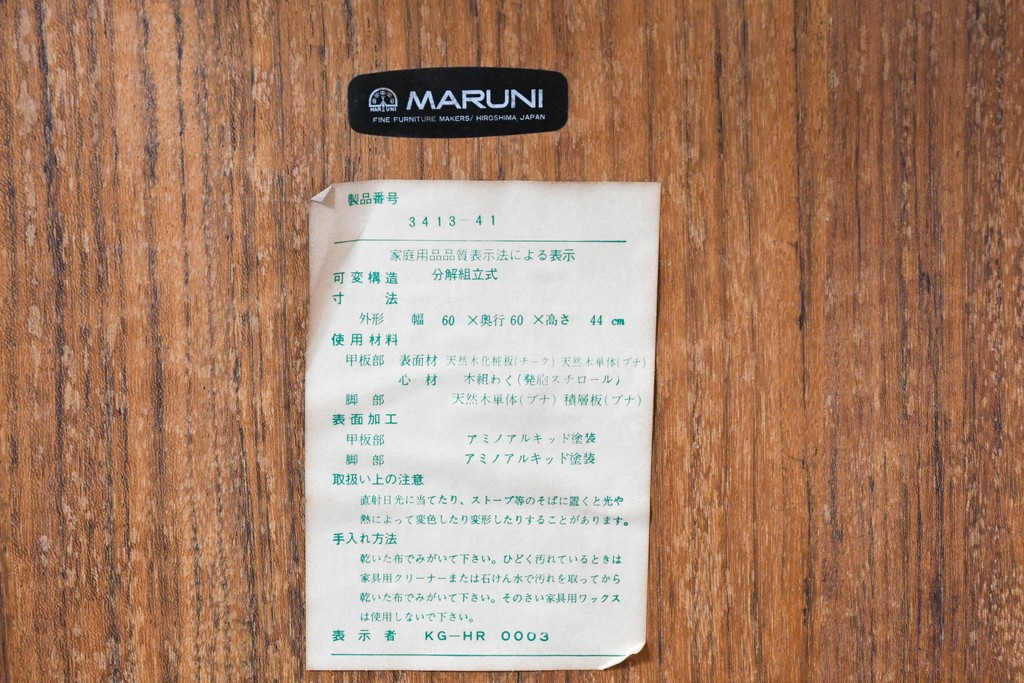 MARUNI
MARUNI
FINE FURNITURE MAKERS/ HIROSHIMA, JAPAN
製品番号
3413-41
家庭用品品質表示法による表示
可変構造 分解組立式
寸 法
外形 幅 60 ×奥行60 ×高さ 44 cm
使用材料
甲板部 表面材 天然木化粧板(チーク) 天然木単体(ブナ)
心 材 木組わく(発泡スチロール)
脚 部 天然木単体(ブナ) 積層板(ブナ)
表面加工
甲板部 アミノアルキッド塗装
脚 部 アミノアルキッド塗装
取扱い上の注意
直射日光に当てたり、ストーブ等のそばに置くと光や
熱によって変色したり変形したりすることがあります。
手入れ方法
乾いた布でみがいて下さい。ひどく汚れているときは
家具用クリーナーまたは石けん水で汚れを取ってから
乾いた布でみがいて下さい。そのさい家具用ワックス
は使用しないで下さい。
表 示 者 KG-HR 0003